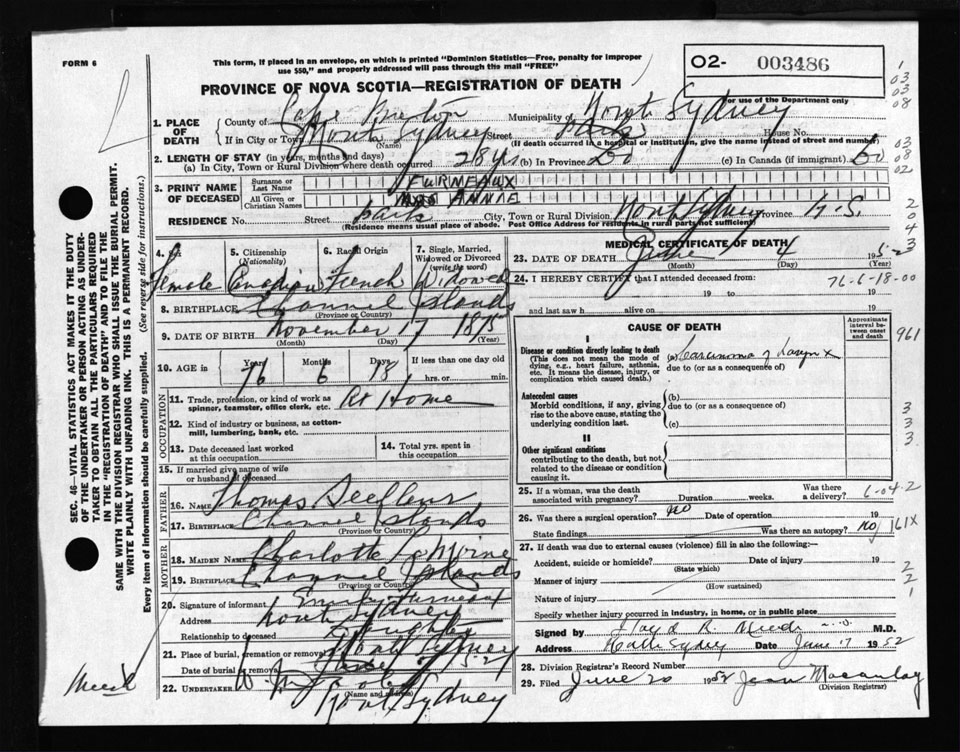 FORM 6
This form, if placed in an envelope, on which is printed "Dominion Statistics—Free, penalty for improper
use 550," and properly addressed will pass through the mail "FREE"
O2- 003486
For use of the Department only
PROVINCE OF NOVA SCOTIA—REGISTRATION OF DEATH
1. PLACE OF DEATH
County of Cape Breton Municipality of North Sydney
If in City or Town North Sydney Street House No.
(Name) (If death occurred in a hospital or institution, give the name instead of street and number)
2. LENGTH OF STAY (in years, months and days)
(a) In City, Town or Rural Division where death occurred 28 yrs (b) In Province Do (c) In Canada (if immigrant) Do
3. PRINT NAME OF DECEASED
Surname or Last Name FURMEAUX
All Given or Christian Names ANNIE
RESIDENCE No. Street City, Town or Rural Division North Sydney Province N.S.
(Residence means usual place of abode. Post Office Address for residents in rural parts not sufficient)
4. Sex Female
5. Citizenship (Nationality) Canadian
6. Racial Origin French
7. Single, Married, Widowed or Divorced (write the word) Widowed
8. BIRTHPLACE Channel Islands
(Province or Country)
9. DATE OF BIRTH November 17 1875
(Month) (Day) (Year)
10. AGE in Years 76 Months 6 Days 18 If less than one day old
hrs. or min.
OCCUPATION
11. Trade, profession, or kind of work as spinner, teamster, office clerk, etc. At Home
12. Kind of industry or business, as cotton-mill, lumbering, bank, etc.
13. Date deceased last worked at this occupation
14. Total yrs. spent in this occupation
15. If married give name of wife or husband of deceased
FATHER
16. NAME Thomas
17. BIRTHPLACE Channel Islands
(Province or Country)
MOTHER
18. MAIDEN NAME Charlotte
19. BIRTHPLACE Channel Islands
(Province or Country)
20. Signature of informant
Address North Sydney
Relationship to deceased Daughter
21. Place of burial, cremation or removal North Sydney
Date of burial or removal June
22. UNDERTAKER
(Name and address)
North Sydney
MEDICAL CERTIFICATE OF DEATH
23. DATE OF DEATH June 4 1952
(Month) (Day) (Year)
24. I HEREBY CERTIFY that I attended deceased from:
76-6-18-00
19 to 19
and last saw h alive on 19
CAUSE OF DEATH
Approximate interval between onset and death
I
Disease or condition directly leading to death
(This does not mean the mode of dying, e.g., heart failure, asthenia, etc. It means the disease, injury, or complication which caused death.)
(a) Carcinoma of Larynx
due to (or as a consequence of)
Antecedent causes
Morbid conditions, if any, giving rise to the above cause, stating the underlying condition last.
(b)
due to (or as a consequence of)
(c)
II
Other significant conditions
contributing to the death, but not related to the disease or condition causing it.
25. If a woman, was the death associated with pregnancy? Duration weeks. Was there a delivery?
6-04-2
26. Was there a surgical operation? No Date of operation 19
State findings Was there an autopsy? No
161X
27. If death was due to external causes (violence) fill in also the following:—
Accident, suicide or homicide? Date of injury 19
(State which)
Manner of injury
(How sustained)
Nature of injury
Specify whether injury occurred in industry, in home, or in public place
Signed by M.D.
Address Sydney Date June 17 1952
28. Division Registrar's Record Number
29. Filed June 20 1952 Jean Macaulay
(Division Registrar)
SEC. 46—VITAL STATISTICS ACT MAKES IT THE DUTY
OF THE UNDERTAKER OR PERSON ACTING AS UNDER-
TAKER TO OBTAIN ALL THE PARTICULARS REQUIRED
IN THE "REGISTRATION OF DEATH" AND TO FILE THE
SAME WITH THE DIVISION REGISTRAR WHO SHALL ISSUE THE BURIAL PERMIT.
WRITE PLAINLY WITH UNFADING INK. THIS IS A PERMANENT RECORD.
Every item of information should be carefully supplied. (See reverse side for instructions.)
1
03
03
08
03
08
02
2
0
4
3
961
3
3
3
2
2
1